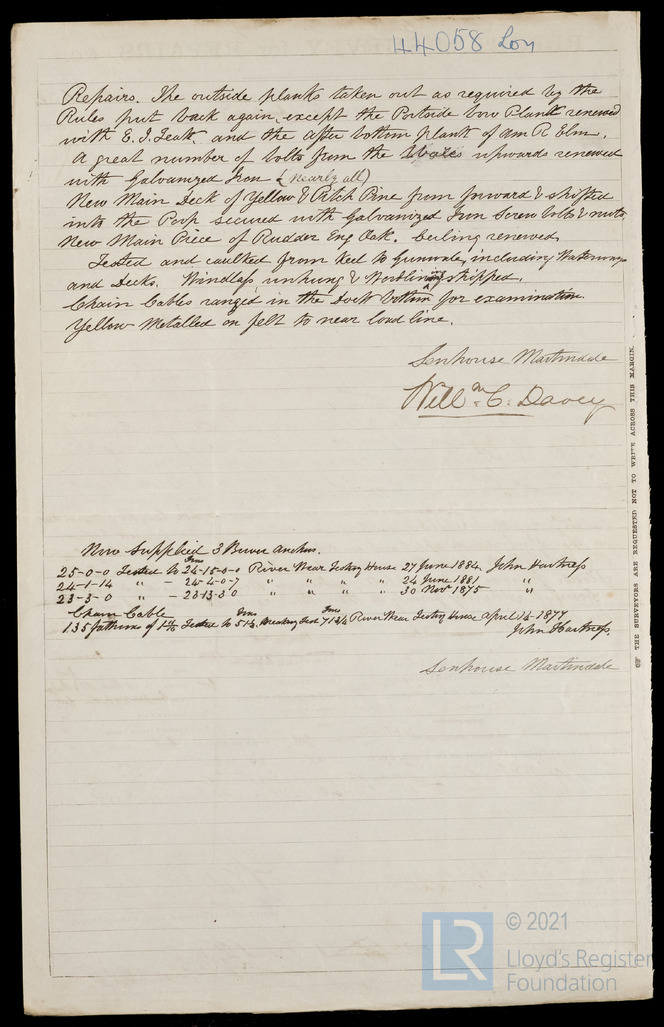 44058 Lon
Repairs. The outside planks taken out as required by the
Rules put back again, except the Portside bow Plank renewed
with E. I. Teak, and the after bottom plank of Am R Elm.
A great number of bolts from the Wales upwards renewed
with Galvanized Iron (nearly all)
New Main Deck of Yellow & Pitch Pine from forward & shifted
into the Poop secured with Galvanized Iron Screw bolts & nuts
New Main Piece of Rudder Eng Oak. Ceiling renewed.
Tested and caulked from keel to Gunwale, including Waterways
and Decks. Windlass unhung & stripped.
Chain Cables ranged in the Dock bottom for examination.
Yellow Metalled on felt to near load line.
Senhouse Martindale
Willm. C. Davey
OF THE SURVEYORS ARE REQUESTED NOT TO WRITE ACROSS THIS MARGIN.
Now Supplied 3 Bower anchors.
25-0-0 Tested to 24-15-0-0 River Wear Testing House 27 June 1884. John Hartness
24-1-14 " - 24-4-0-7 " " " " 24 June 1881 "
23-3-0 " - 23-13-3-0 " " " " 30 Novr 1875 "
Chain Cable
135 fathoms of Tested to Tons Breaking Test Tons River Wear Testing House April 1877
John Hartness.
Senhouse Martindale
LR
© 2021
Lloyd's Register
Foundation